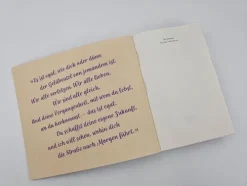 »Es ist egal, wie dick oder dünn
der Geldbeutel von jemandem ist.
Wir alle verletzen. Wir alle lieben.
Wir sind alle gleich.
Und deine Vergangenheit, mit wem du lebst,
an du herkommst – das ist egal.
Du schaffst deine eigene Zukunft,
und ich will sehen, wohin dich
die Straße nach Morgen führt.«